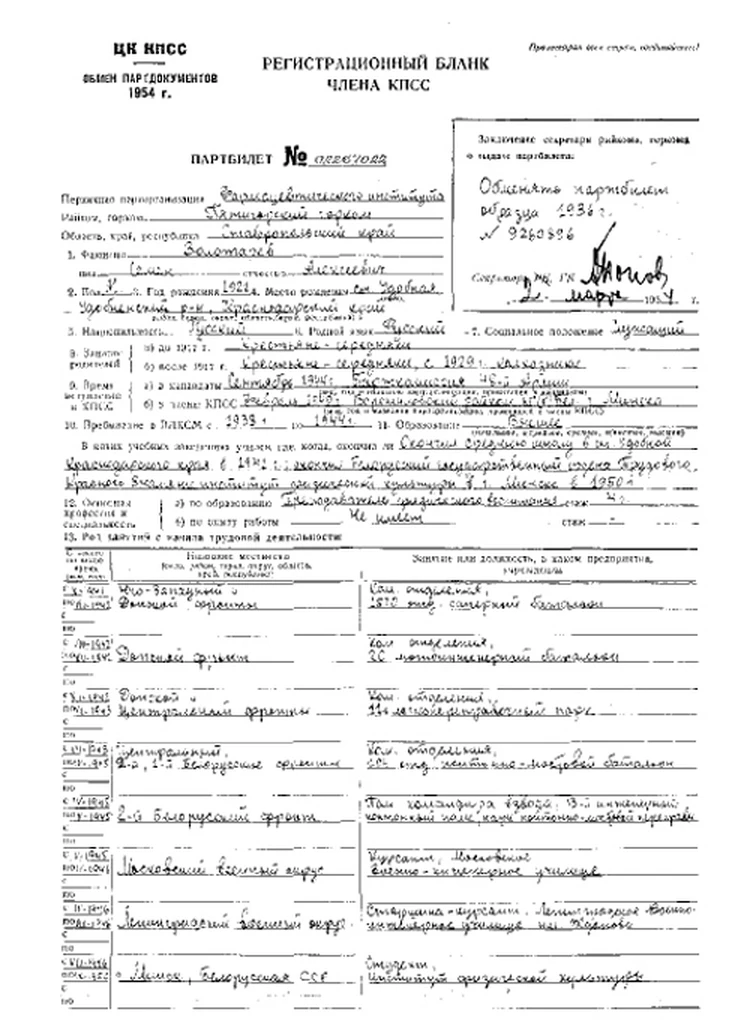 ЦК КПСС
ОБМЕН ПАРТДОКУМЕНТОВ
1954 г.
РЕГИСТРАЦИОННЫЙ БЛАНК
ЧЛЕНА КПСС
Пролетарии всех стран, соединяйтесь!
ПАРТБИЛЕТ № 02267022
Заключение секретаря райкома, горкома
о выдаче партбилета:
Обменять партбилет
образца 1936 г.
№ 9260896
Секретарь ГК
2 марта 1954 г.
Первичная парторганизация Фармацевтического института
Район, горком Пятигорский горком
Область, край, республика Ставропольский край
1. Фамилия Золотачев
имя отчество Алексеевич
2. Пол 3. Год рождения 1921 4. Место рождения ст. Удобная
Удобненский р-н, Краснодарский край
5. Национальность Русский 6. Родной язык Русский 7. Социальное положение Служащий
8. Занятие родителей
а) до 1917 г. Крестьяне-середняки
б) после 1917 г. Крестьяне-середняки, с 1929 г. колхозники
9. Время вступления в КПСС
а) в кандидаты Сентябрь 1944 г. Парткомиссия 48-й Армии
б) в члены КПСС Февраль г. Минска
10. Пребывание в ВЛКСМ с 1939 г. по 1944 г. 11. Образование Высшее
В каких учебных заведениях учился, где, когда, окончил ли Окончил среднюю школу в ст. Удобной
Краснодарского края в 1941 г.; окончил Белорусский государственный ордена Трудового
Красного Знамени институт физической культуры в г. Минске в 1950 г.
12. Основная профессия и специальность
а) по образованию Преподаватель физического воспитания стаж 4 г.
б) по опыту работы Не имеет стаж –
13. Род занятий с начала трудовой деятельности
Название местности
Занятие или должность, в каком предприятии, учреждении
Юго-Западный и Донской фронты
Ком. отделения, саперный батальон
Донской фронт
Ком. отделения, мотоинженерный батальон
Донской и Центральный фронты
Ком. отделения, парк
Центральный, 2-й, 1-й Белорусские фронты
Ком. отделения, понтонно-мостовой батальон
2-й Белорусский фронт
Пом. командира взвода
Московский военный округ
Курсант, Московское военно-инженерное училище
Ленинградский военный округ
Старшина-курсант, Ленинградское военно-инженерное училище им. Жданова
г. Минск, Белорусская ССР
Студент, институт физической культуры